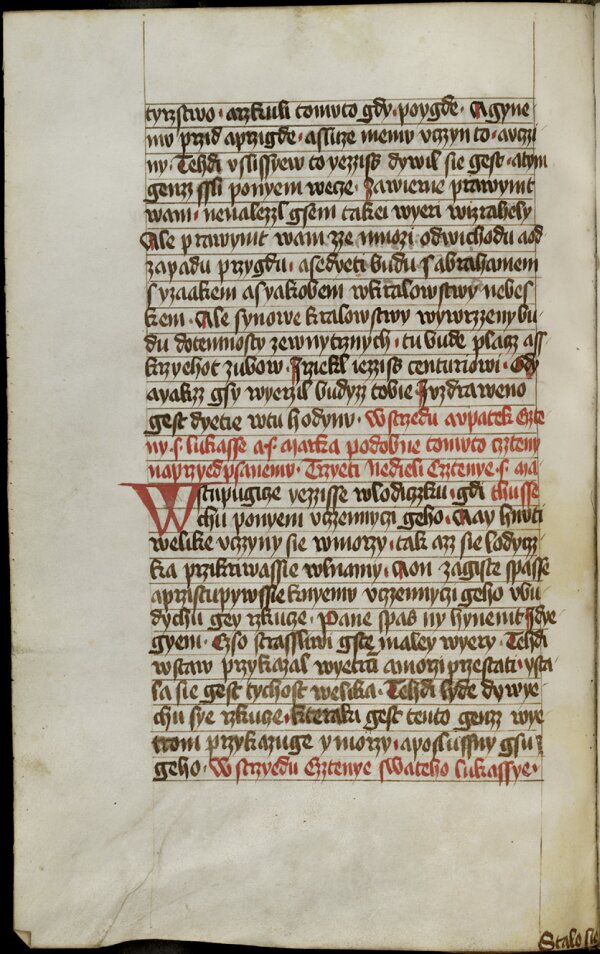 tyrzstwo · arzkuli tomuto gdy · poygde · Agyne
mu przid aprzigde · asluze memu vczyn to · avczi
ny · Tehdi vslissyew to yezziss dywil sie gest · atym
genzz ssli ponyem wece · Zawierne prawymt
wam · nenalezzl gsem takei wyeri wizrahely
Ale prawymt wam zze mnozi odwichodu aod
zapadu przygdu · asedyeti budu sabrahamem
syzaakem asyakobem wkralowstwy nebes
kem · Ale synowe kralowstwy wywrzzeny bu
du dotemnosty zewnytrznych · tu bude placz ass
krzychot zubow · Jrziekl iezziss centuriowi · Gdy
ayakzz gsy wyerzil budyzz tobie Jvzdraweno
gest dyetie wtu hodynu · Wstrzedu avpatek Czte
ny · s · lukasse a · s · marka podobne tomuto cztenu
naprzyedpsanemu · Trzyeti nedieli Cztenye · s · ma
Wstupugicze yezzisse wlodiczku · gdi thusse
chu ponyem vczennyczi geho · Aay hnuti
welike vczyny sie wmorzy · tak azz sie lodycz
ka przikriwassie wlnamy · Aon zagiste spasse
aprzistupywssie knyemu vczennyczi geho vbu
dychu gey rzkucze · Pane spas ny hynemt hdye
gyem · Czso strasslivi gste maley wyery · Tehdi
wstaw przykazal wyetru amorzi przestati · ysta
la sie gest tychost welika · Tehdi lyde dywye
chu sye rzkucze · kteraku gest tento genzz wye
trom przykazuge ymorzy · aposlussny gsu
geho · Wstrzyedu Cztenye swateho lukassye ·
Stalo sie